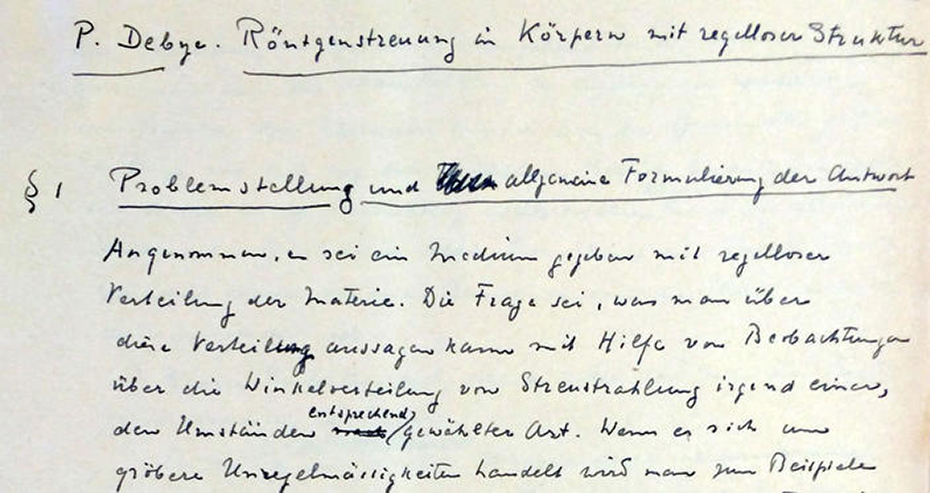 P. Debye. Röntgenstreuung in Körpern mit regelloser Struktur
§ 1 Problemstellung und allgemeine Formulierung der Antwort
Angenommen, es sei ein Medium gegeben mit regelloser
Verteilung der Materie. Die Frage sei, was man über
diese Verteilung aussagen kann mit Hilfe von Beobachtungen
über die Winkelverteilung von Streustrahlung irgend einer,
den Umständen entsprechend, gewählter Art. Wenn es sich um
gröbere Unregelmässigkeiten handelt wird man zum Beispiele